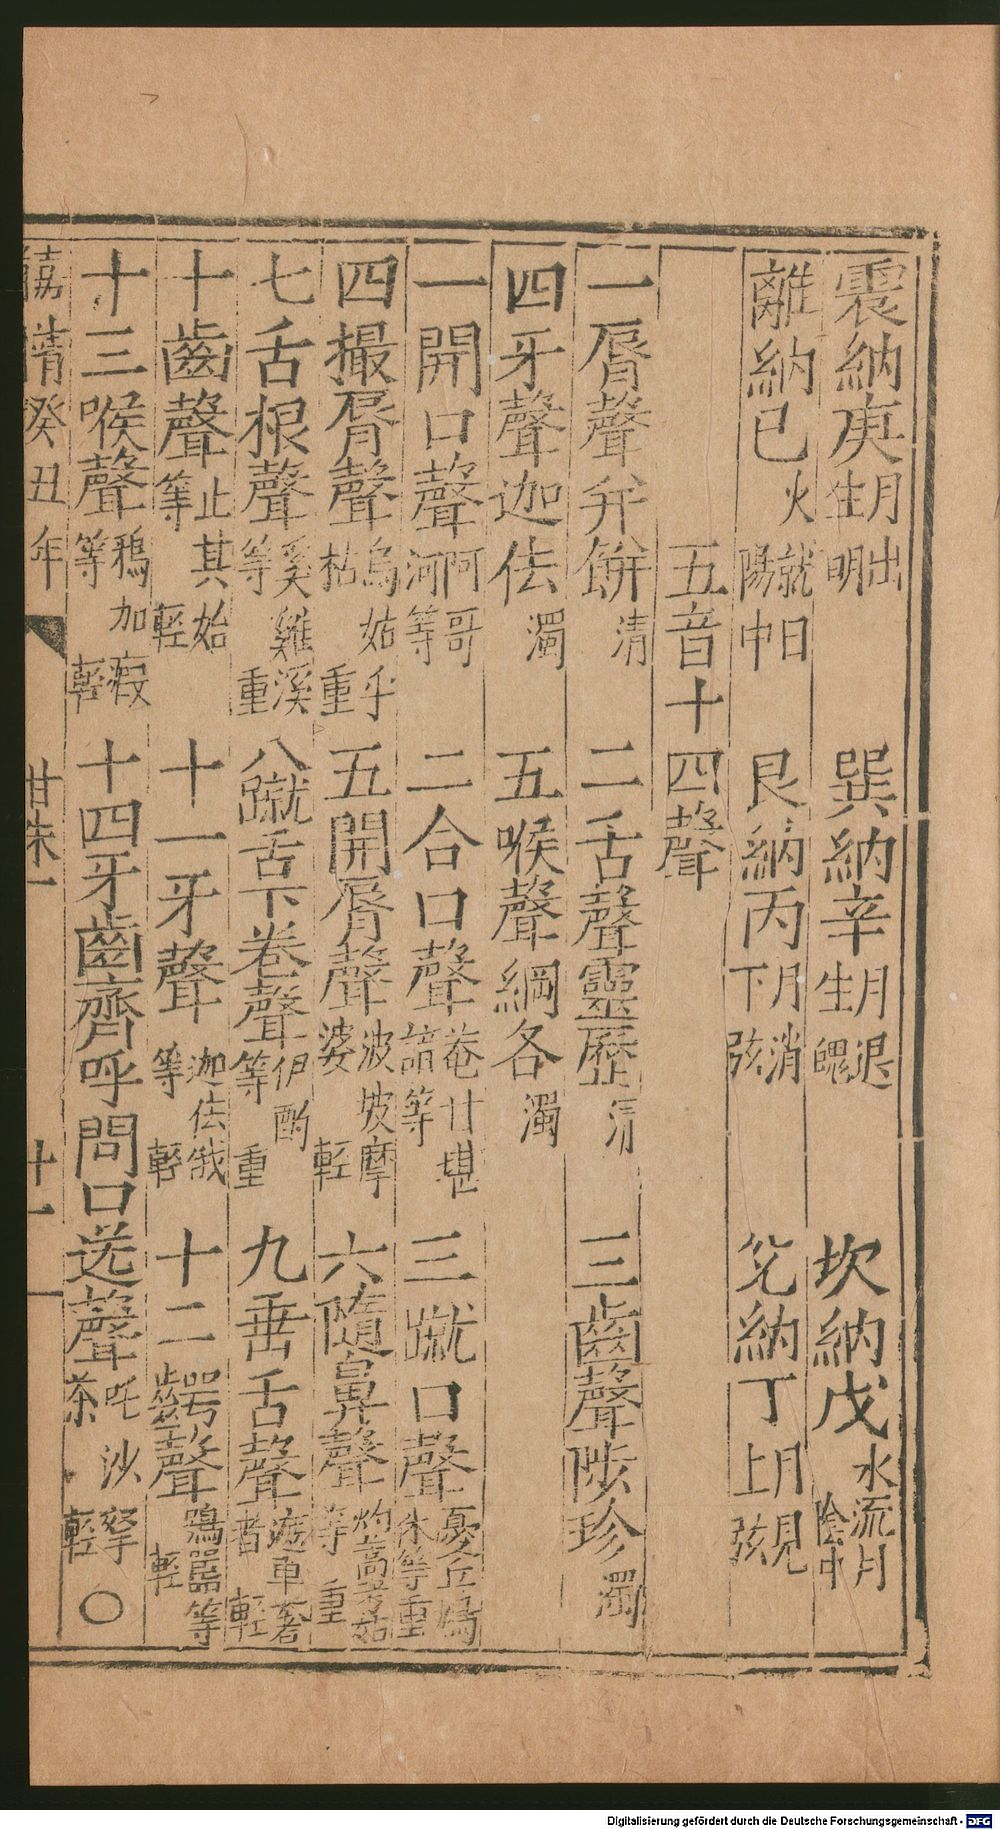 震納庚月出生明 巽納辛月退生魄 坎納戊水流月陰中
離納已火就日陽中 艮納丙月消下弦 兌納丁月見上弦
五音十四聲
一唇聲并餅清 二舌聲靈歷清 三齒聲陟珍濁
四牙聲迦佉濁 五喉聲綱各濁
一開口聲阿哥河等 二合口聲菴甘堪諳等 三蹴口聲憂丘鳩休等重
四撮唇聲烏姑乎枯重 五開唇聲波坡摩婆輕 六隨鼻聲灼蒿考姑等重
七舌根聲奚雞溪等重 八蹴舌下卷聲伊酌等重 九垂舌聲遮車奢者輕
十齒聲止其始等輕 十一牙聲迦佉俄等輕 十二齶聲鴞嚣等輕
十三喉聲鴉加瘕等輕 十四牙齒齊呼問口送聲吒沙拏茶輕〇
嘉靖癸丑年 甘朱一 十一
Digitalisierung gefördert durch die Deutsche Forschungsgemeinschaft - DFG